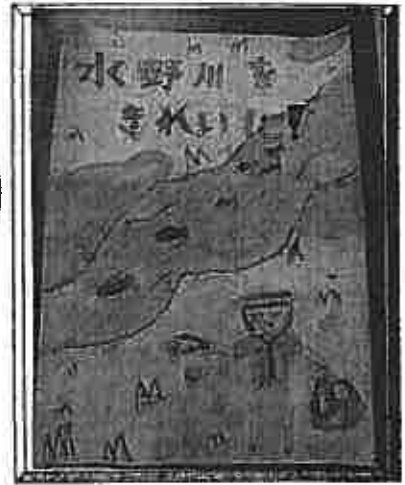 水野川を
きれいに